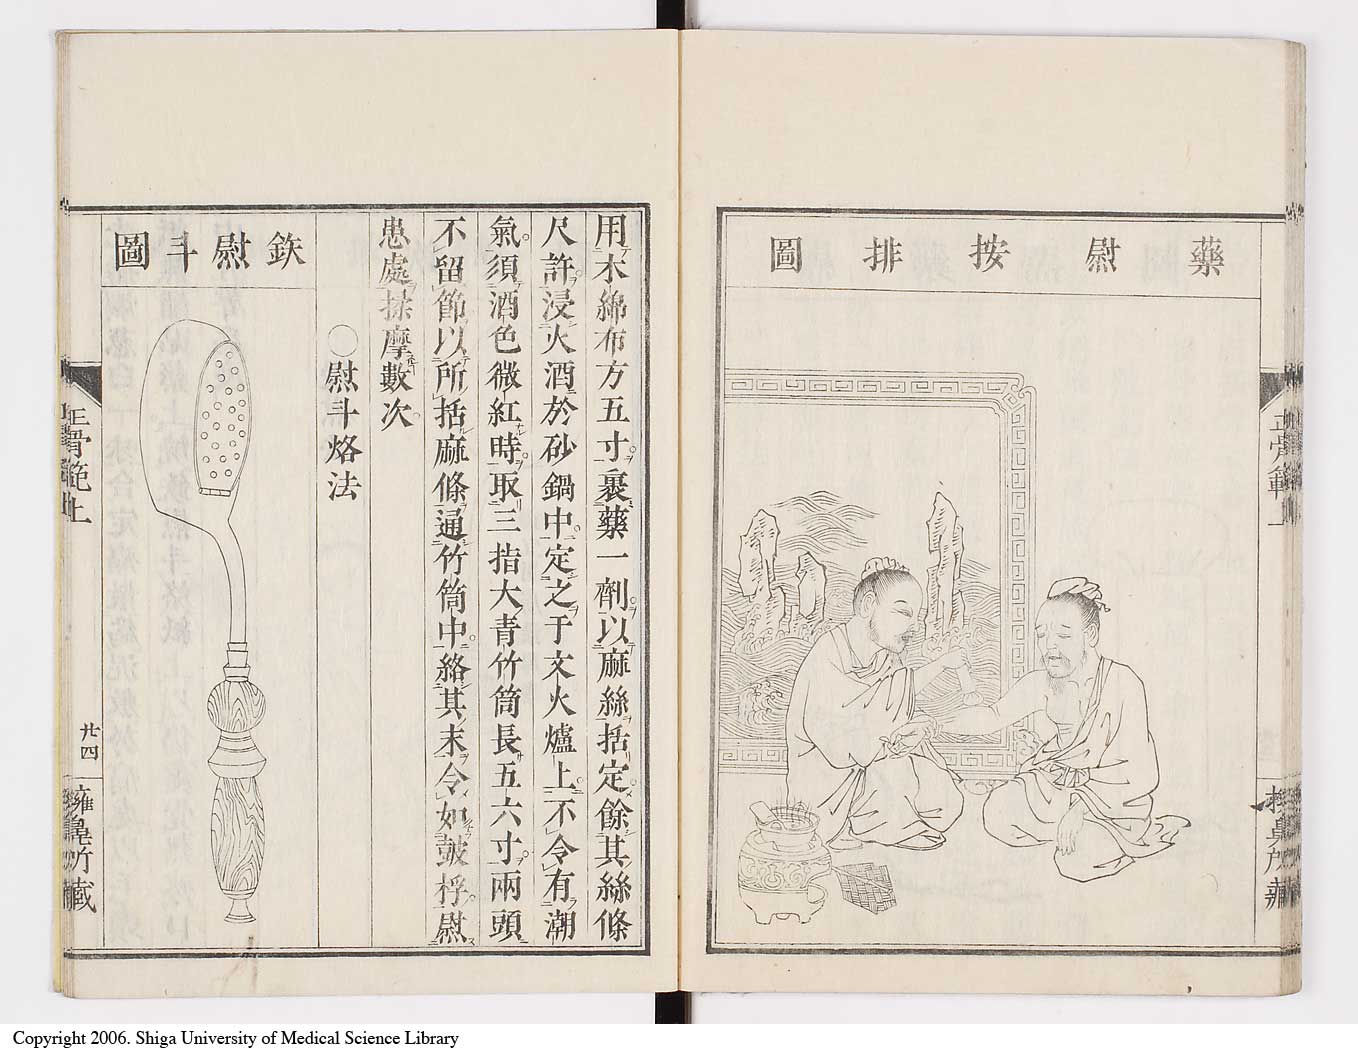 藥慰按排圖
用木綿布方五寸裹藥一劑以麻絲括定餘其絲條
尺許浸火酒於砂鍋中定之于文火爐上不令有潮
氣須酒色微紅時取三指大青竹筒長五六寸兩頭
不留節以所括麻條通竹筒中絡其末令如皷桴慰
患處揉摩數次
〇慰斗烙法
鉃慰斗圖
正骨範上
廿四
Copyright 2006. Shiga University of Medical Science Library